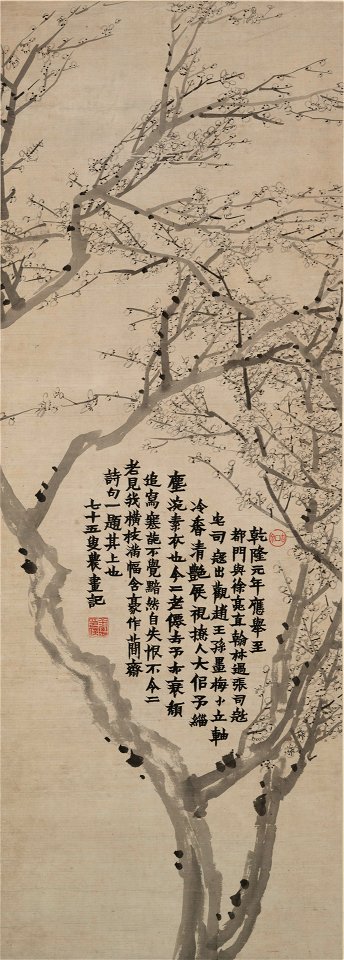 乾隆元年應舉至
都門與徐亮直翰林過張司寇
宅司寇出觀趙王孫墨梅小立軸
冷香清艷展視撩人大佀予緇
塵浣素衣也今二老僊去予亦衰頹
追寫寒葩不覺黯然自失恨不令二
老見我橫枝滿幅含豪作簡齋
詩句一題其上也
七十五叟農畫記